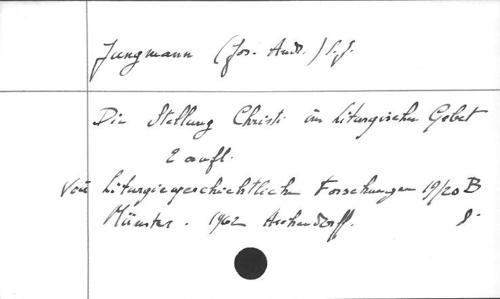 Jungmann (Jos. And.) S.J.
Die Stellung Christi im Liturgischen Gebet
2 aufl.
Voir Liturgiegeschichtliche Forschungen 19/20 B
Münster. 1962 Aschendorff.